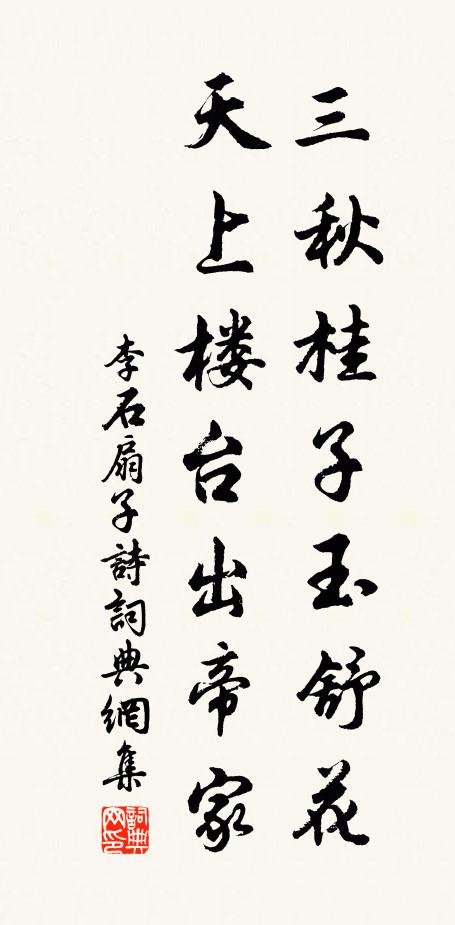 三秋桂子玉舒花
天上楼台出帝家
李石扇子詩詞典網集
詞典
网印